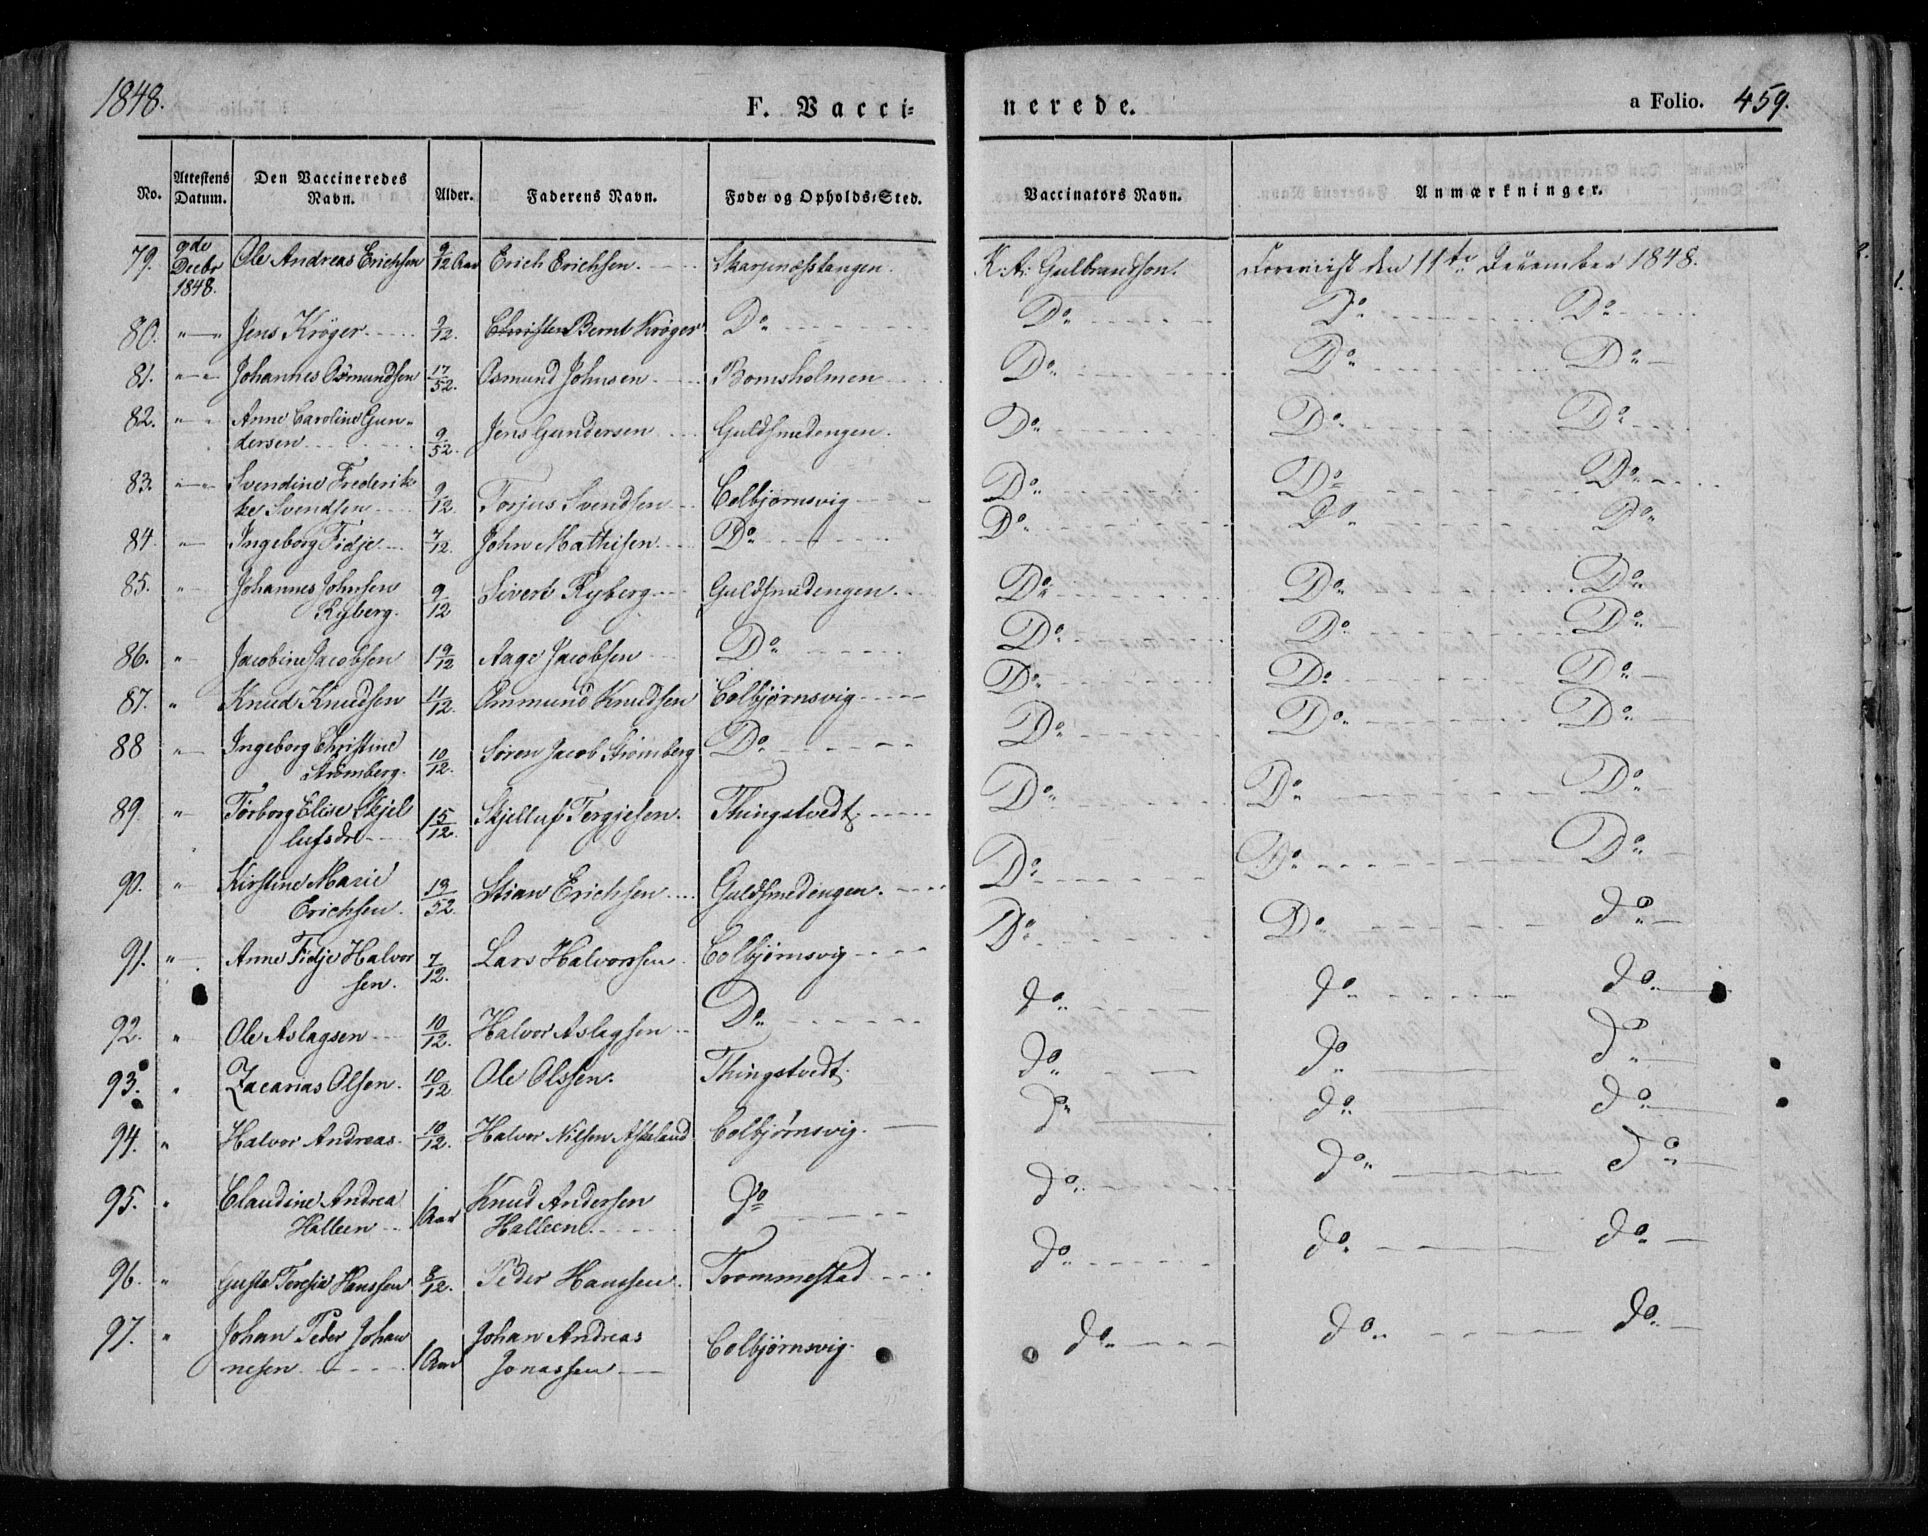 1848.
F. Vacci-
nerede.
a Folio. 459.
No. | Attestens Datum. | Den Vaccineredes Navn. | Alder. | Faderens Navn. | Føde- og Opholds-Sted. | Vaccinators Navn. | Anmærkninger.
79. | 9de Decbr 1848. | Ole Andreas Erichsen | 9/12 Aar | Erich Erichsen. | Skarpnæstangen. | K. A. Gulbrandson. | Foreviist den 11te December 1848.
80. | " " | Jens Krøger | 9/12. | Christen Bernt Krøger. | Do | Do | Do Do
81. | " " | Johannes Osmundsen | 17/52. | Osmund Johnsen | Bomsholmen | Do | Do Do
82. | " " | Anne Caroline Gun-
dersen | 9/52. | Jens Gundersen | Guldsmedengen. | Do | Do Do
83. | " " | Svendine Frederik-
ke Svendsen | 9/12. | Torjus Svendsen | Colbjørnsvig | Do | Do Do
84. | " | Ingeborg Fidje | 7/12. | John Mathisen | Do | Do | Do Do
85. | " | Johannes Johnsen
Ryberg. | 9/12 | Sivert Ryberg | Guldsmedengen. | Do | Do Do
86. | " | Jacobine Jacobsen | 19/12 | Aage Jacobsen | Do | Do | Do Do
87. | " | Knud Knudsen | 11/12. | Ommund Knudsen | Colbjørnsvig | Do | Do Do
88 | " | Ingeborg Christine
Strømberg. | 10/12. | Søren Jacob Strømberg | Do | Do | Do Do
89. | " | Torborg Elise Skjel
lufsdr | 15/12. | Skjelluf Tergiesen. | Thingstvedt. | Do | Do Do
90. | " | Kirstine Marie
Erichsen. | 19/52. | Stian Erichsen | Guldsmedengen. | Do | Do Do
91. | " | Anne Fidje Halvor
sen. | 7/12. | Lars Halvorsen | Colbjørnsvig | Do | Do do
92. | " | Ole Aslagsen | 10/12. | Halvor Aslagsen | Do | do | do do
93. | " | Zacarias Olsen. | 10/12 | Ole Olssen. | Thingstvedt. | do | do do
94. | " | Halvor Andreas. | 10/12. | Halvor Nilsen Askeland | Colbjørnsvig. | do | do do
95. | " | Claudine Andrea
Halleen | 1 Aar | Knud Andersen
Halleen. | do | do | do do
96. | " | Gusta Teresie Hanssen | 8/12. | Peder Hanssen. | Trommestad | do | do do
97. | " | Johan Peder Johan
nesen | 1 Aar | Johan Andreas
Jonassen | Colbjørnsvig. | do | do do